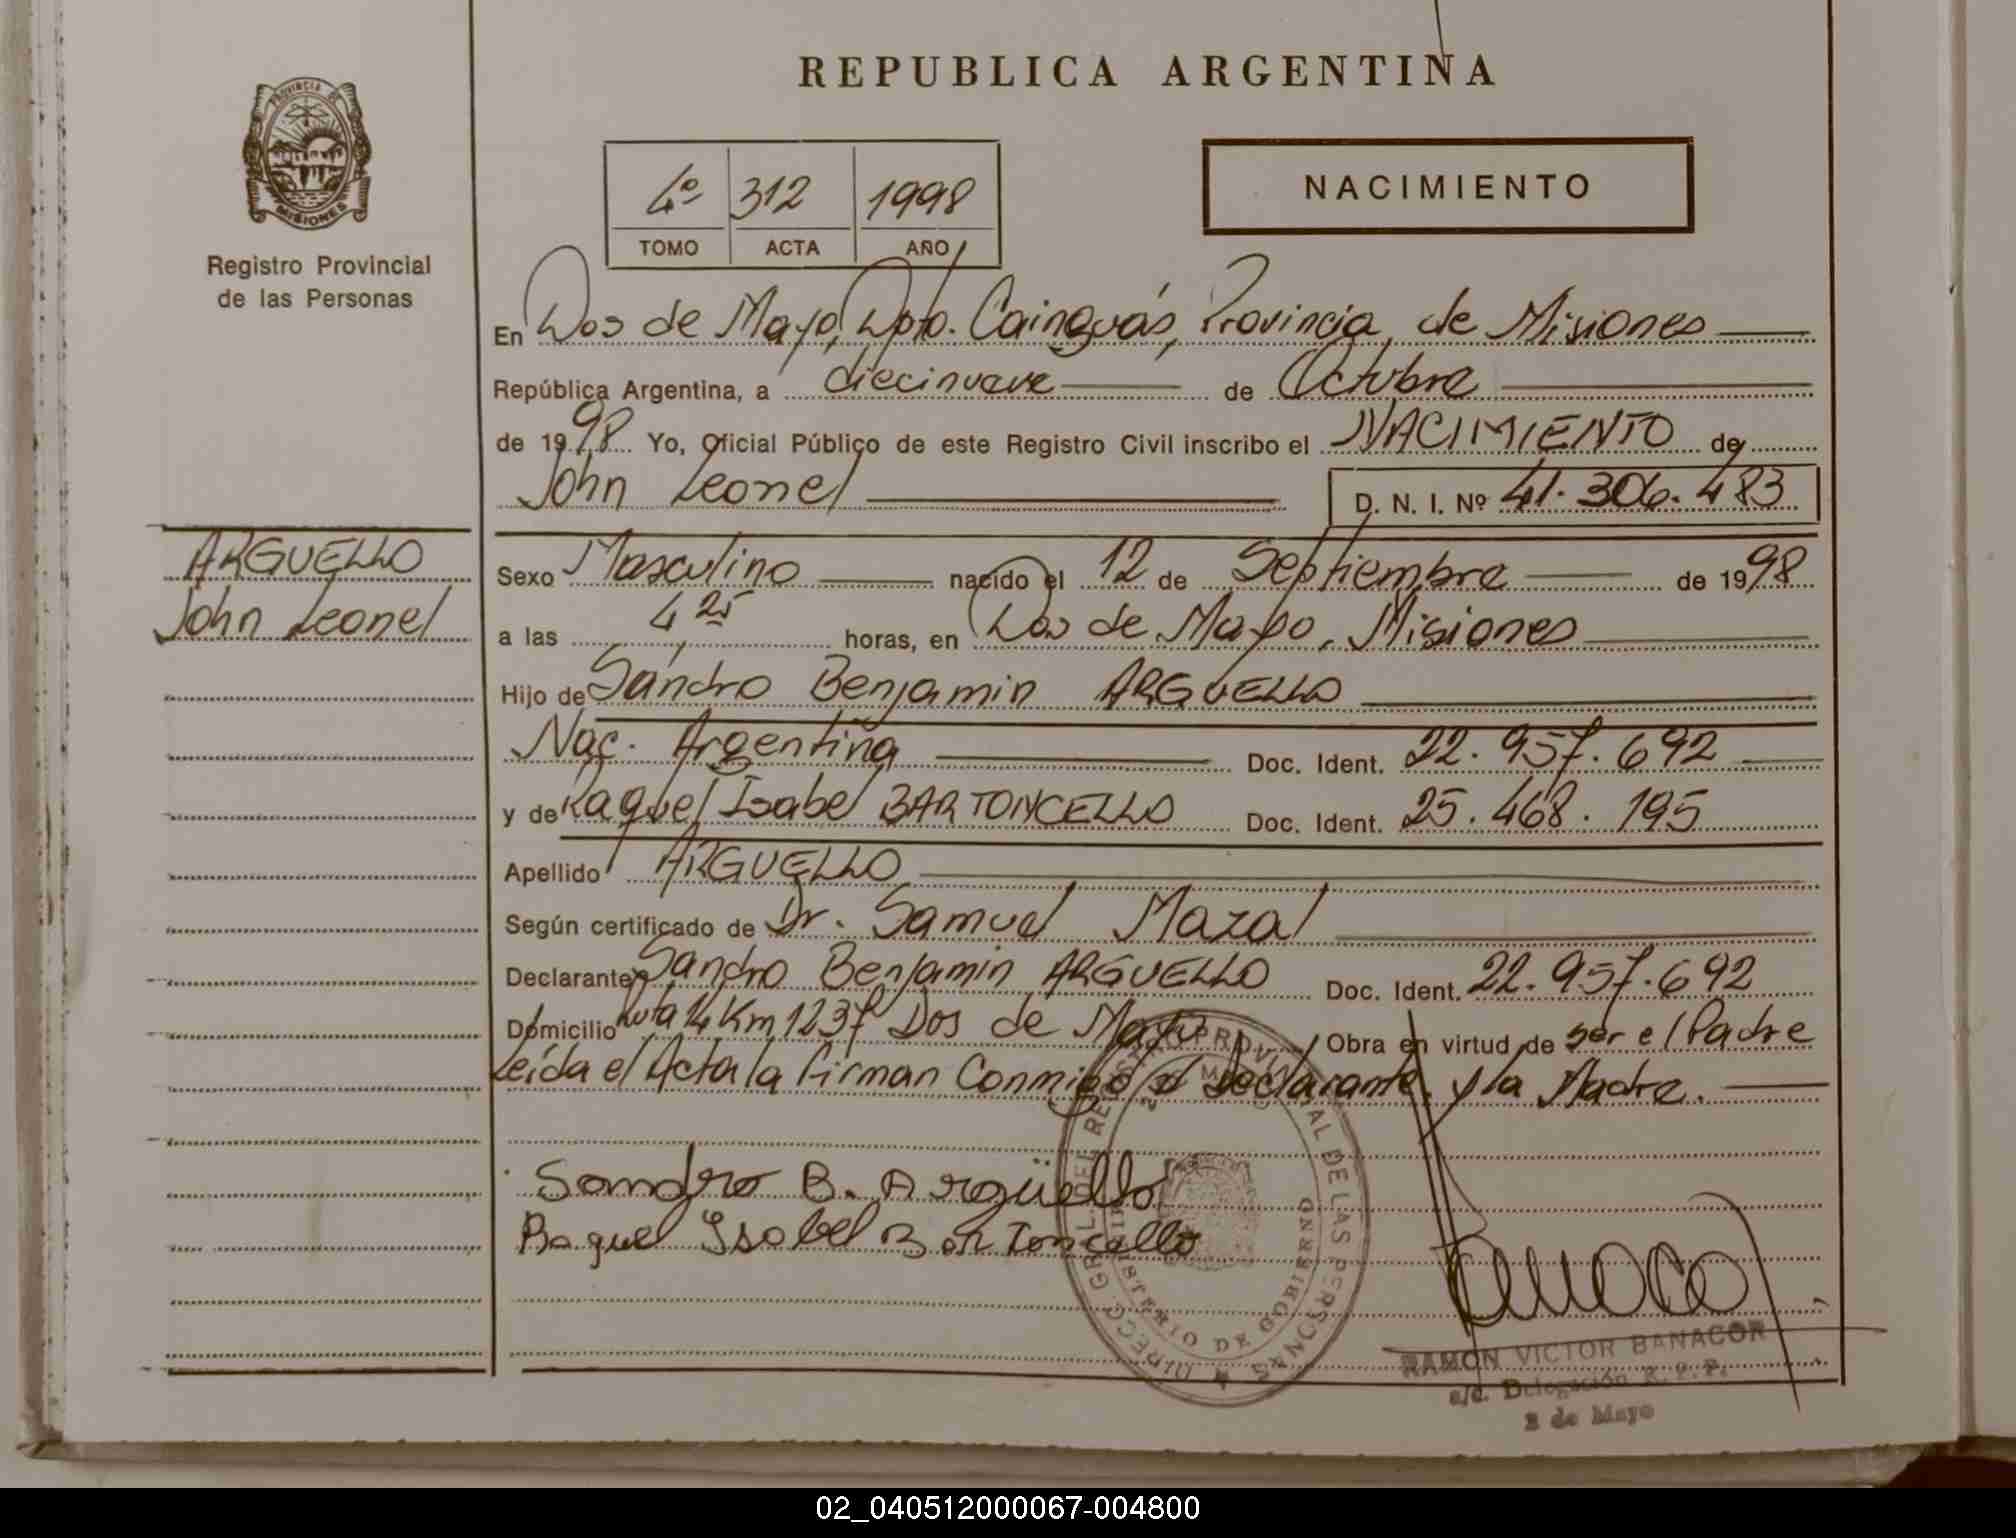 REPUBLICA ARGENTINA
PROVINCIA DE
MISIONES
Registro Provincial
de las Personas
4º 312 1998
TOMO ACTA AÑO
NACIMIENTO
En Dos de Mayo, Dpto. Cainguás, Provincia de Misiones
República Argentina, a diecinueve de Octubre
de 1998 Yo, Oficial Público de este Registro Civil inscribo el NACIMIENTO de
John Leonel D. N. I. Nº 41.306.483
ARGUELLO
John Leonel
Sexo Masculino nacido el 12 de Septiembre de 1998
a las 4 25 horas, en Dos de Mayo, Misiones
Hijo de Sandro Benjamin ARGUELLO
Nac. Argentina Doc. Ident. 22.957.692
y de Raquel Isabel BARTONCELLO Doc. Ident. 25.468.195
Apellido ARGUELLO
Según certificado de Dr. Samuel Mazal
Declarante Sandro Benjamin ARGUELLO Doc. Ident. 22.957.692
Domicilio Ruta 14 Km 1237 Dos de Mayo Obra en virtud de ser el Padre
Leída el Acta la Firman Conmigo el Declarante y la Madre.
Sandro B. Argüello
Raquel Isabel Bartoncello
DIRECC. GRAL. DEL REGISTRO PROVINCIAL DE LAS PERSONAS
MINISTERIO DE GOBIERNO
RAMON VICTOR BANACOR
a/c. Delegación R. P. P.
2 de Mayo
02_040512000067-004800